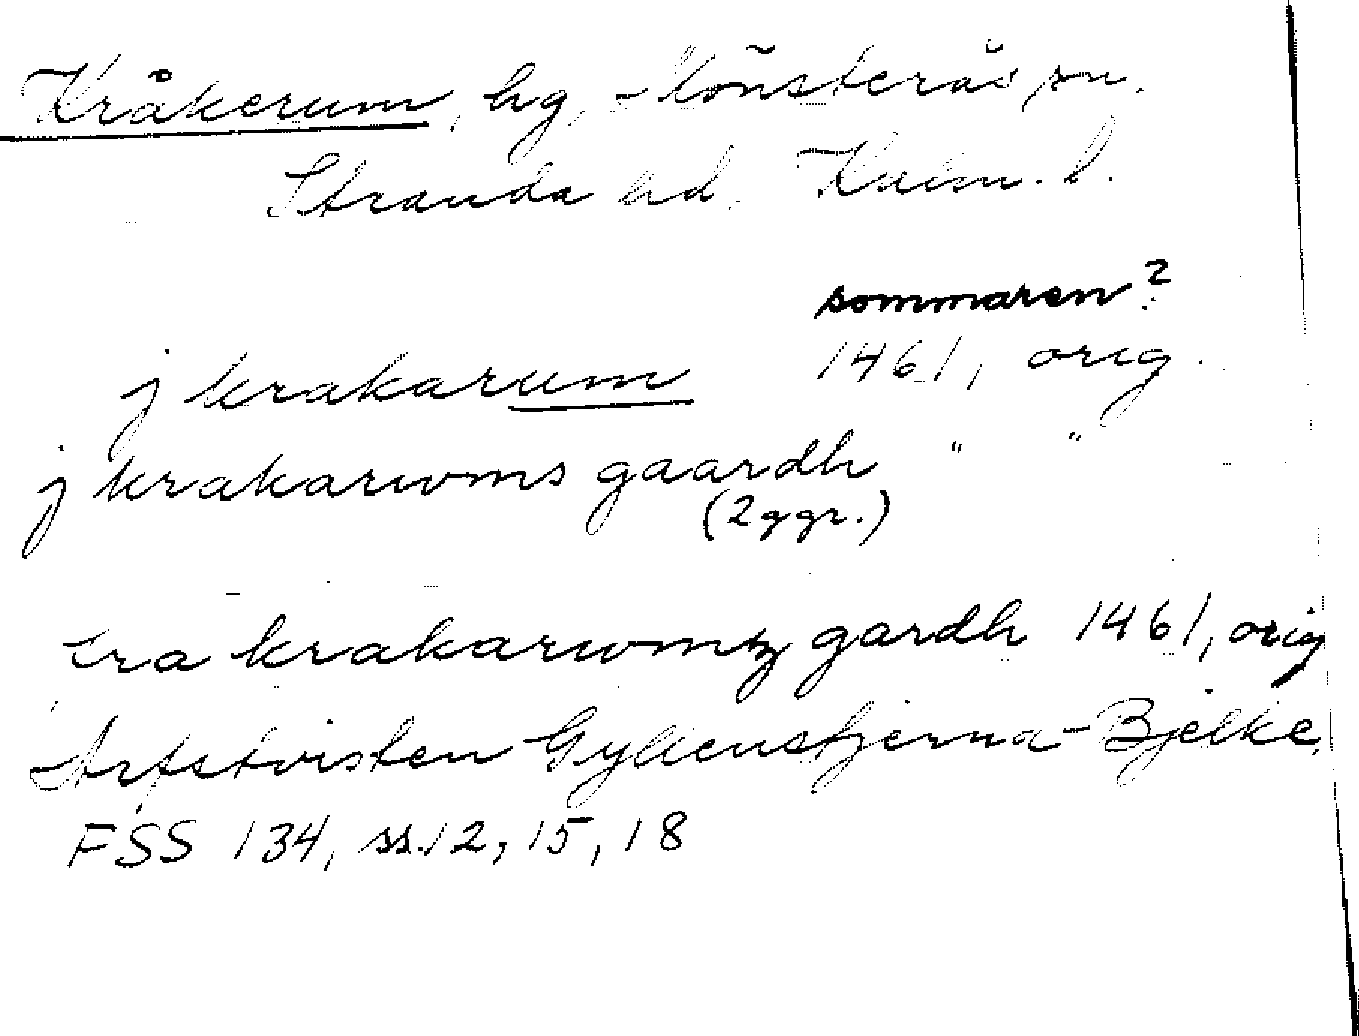 Kråkerum, hg, Mönsterås sn.
Stranda hd. Kalm. l.
sommaren?
j krakarum 1461, orig.
j krakarwms gaardh " "
(2 ggr.)
kra krakarwmz gardh 1461, orig
Arfstvisten Gyllenstjerna-Bjelke,
FSS 134, ss. 12, 15, 18